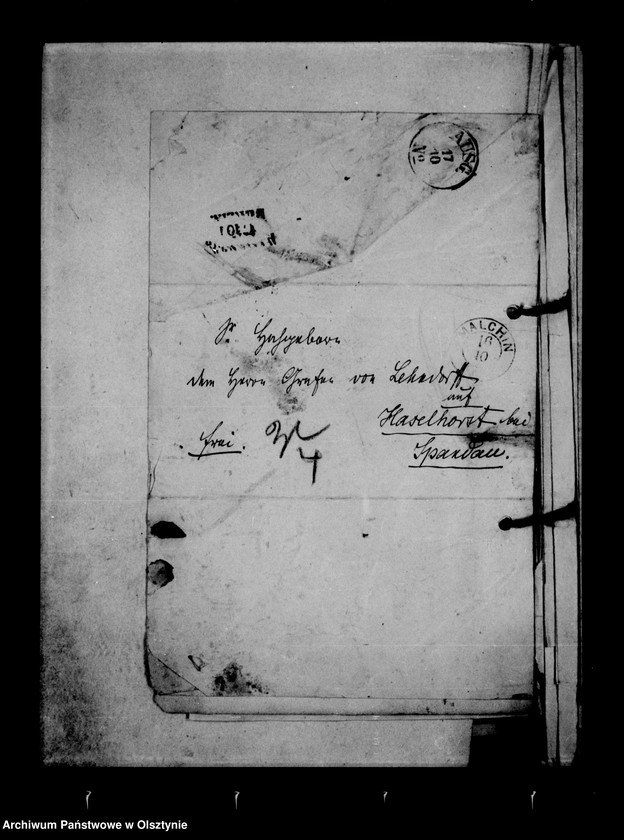 AUSG
17
10
No
MALCHIN
16
10
Sr Hochgeborn
dem Herrn Grafen von Lehndorff
auf
Haselhorst bei
Spandau.
frei.
4
Archiwum Państwowe w Olsztynie